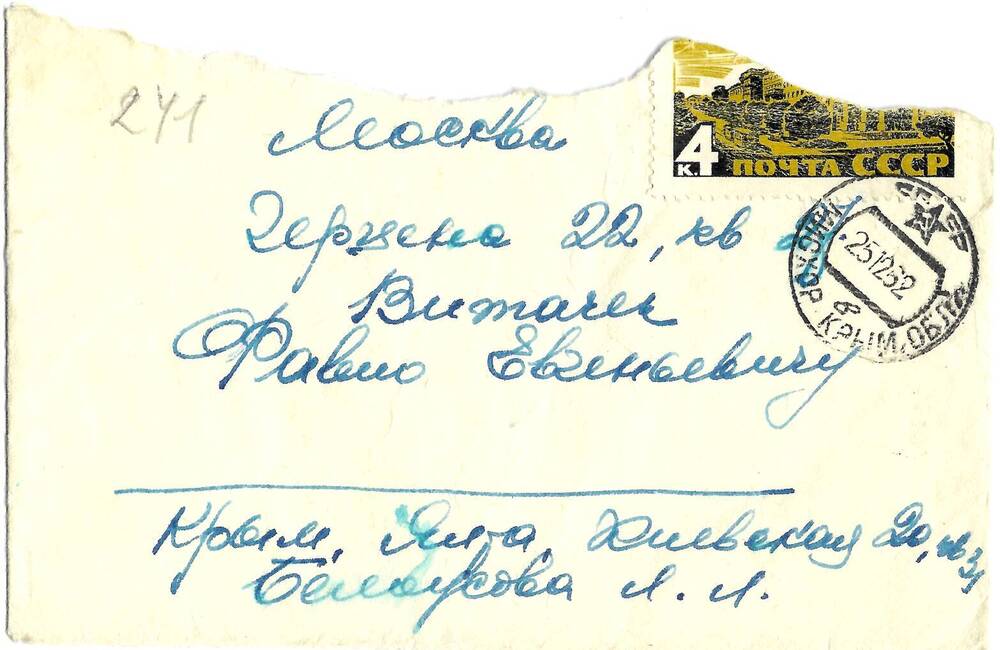 241
Москва
4 к. ПОЧТА СССР
Герцена 22, кв
25 12 62
КРЫМ. ОБЛ.
Витачек
Фавию Евгеньевичу
Крым, Ялта, Киевская 20, кв 31
Белоусова Л. Л.